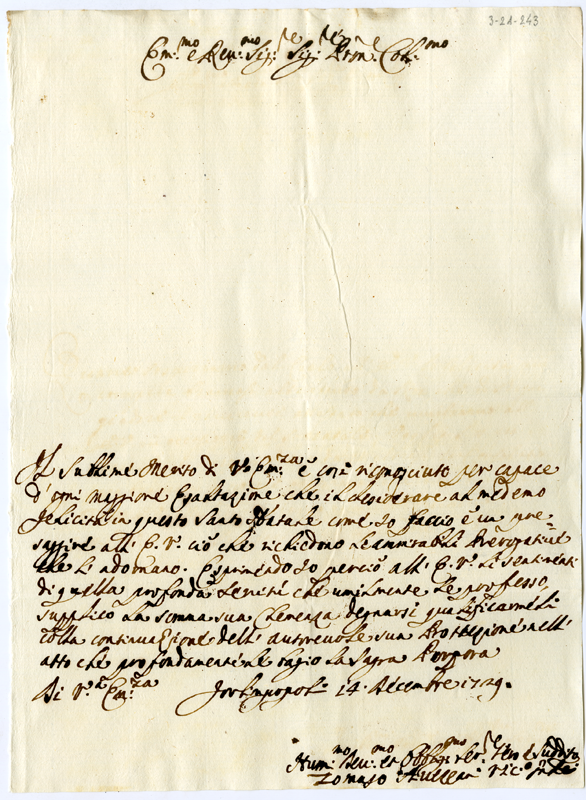 3-21-243
Em:mo e Reu:mo Sig:re Sig:re Pron:e Col:mo
Il Sublime Merito di V.a Em:za è così riconosciuto per capace
d'ogni maggiore Esaltazione che il desiderare al medemo
felicità in questo Santo Natale come Io faccio è un pre-
saggire all' E. V.a ciò che richiedono le ammirabili Prerogatiue
che L'adornano. Esprimendo Io perciò all' E. V.a li sentimenti
di quella profonda seruitù che umilmente Le professo,
supplico la somma sua Clemenza degnarsi qualificarmeli
colla continuazione dell' autreuole sua Prottezione nell'
atto che profondamente bagio la Sagra Porpora
Di V.a Em:za 14. Decembre 1729.
Hum:mo Deu:mo et Obblig:mo Ser:re e Suddito
Tomaso